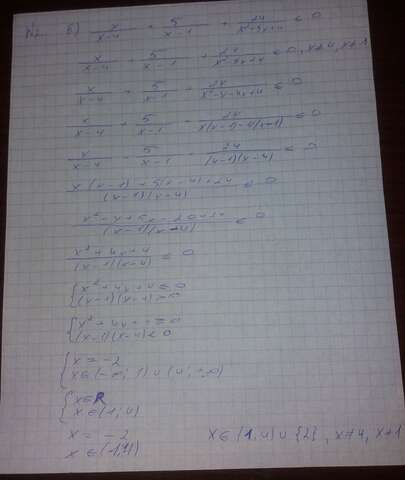 N2 б) x/(x-4) + 5/(x-1) + 24/(x²-5x+4) ≤ 0
x/(x-4) + 5/(x-1) + 24/(x²-5x+4) ≤ 0, x≠4, x≠1
x/(x-4) + 5/(x-1) + 24/(x²-x-4x+4) ≤ 0
x/(x-4) + 5/(x-1) + 24/(x(x-1)-4(x-1)) ≤ 0
x/(x-4) + 5/(x-1) + 24/((x-1)(x-4)) ≤ 0
(x(x-1)+5(x-4)+24)/((x-1)(x-4)) ≤ 0
(x²-x+5x-20+24)/((x-1)(x-4)) ≤ 0
(x²+4x+4)/((x-1)(x-4)) ≤ 0
{x²+4x+4≤0
(x-1)(x-4)>0
{x²+4x+4≥0
(x-1)(x-4)<0
{x=-2
x∈(-∞; 1)∪(4; +∞)
{x∈R
x∈(1; 4)
x = -2
x∈(1,4)
x∈(1,4)∪{2}, x≠4, x≠1